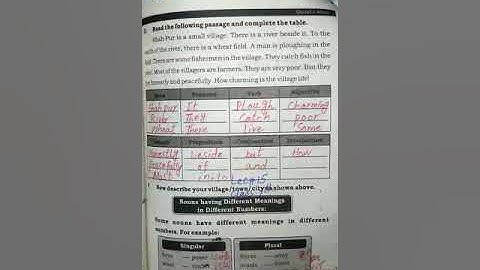 Read the following passage and complete the table.
Pur is a small village. There is a river beside it. To the
of the river, there is a wheat field. A man is ploughing in the
There are some fishermen in the village. They catch fish in the
Most of the villagers are farmers. They are very poor. But they
honestly and peacefully. How charming is the village life!
Noun Pronoun Verb Adjective
Shah pur It Plough Charming
River They Catch poor
wheat There live Some
Preposition Conjunction Interjection
Honestly beside but How
Peacefully of and
Most in
Now describe your village/town/city as shown above.
Nouns having Different Meanings
in Different Numbers:
Some nouns have different meanings in different
numbers. For example:
Singular Plural
force — power force — army